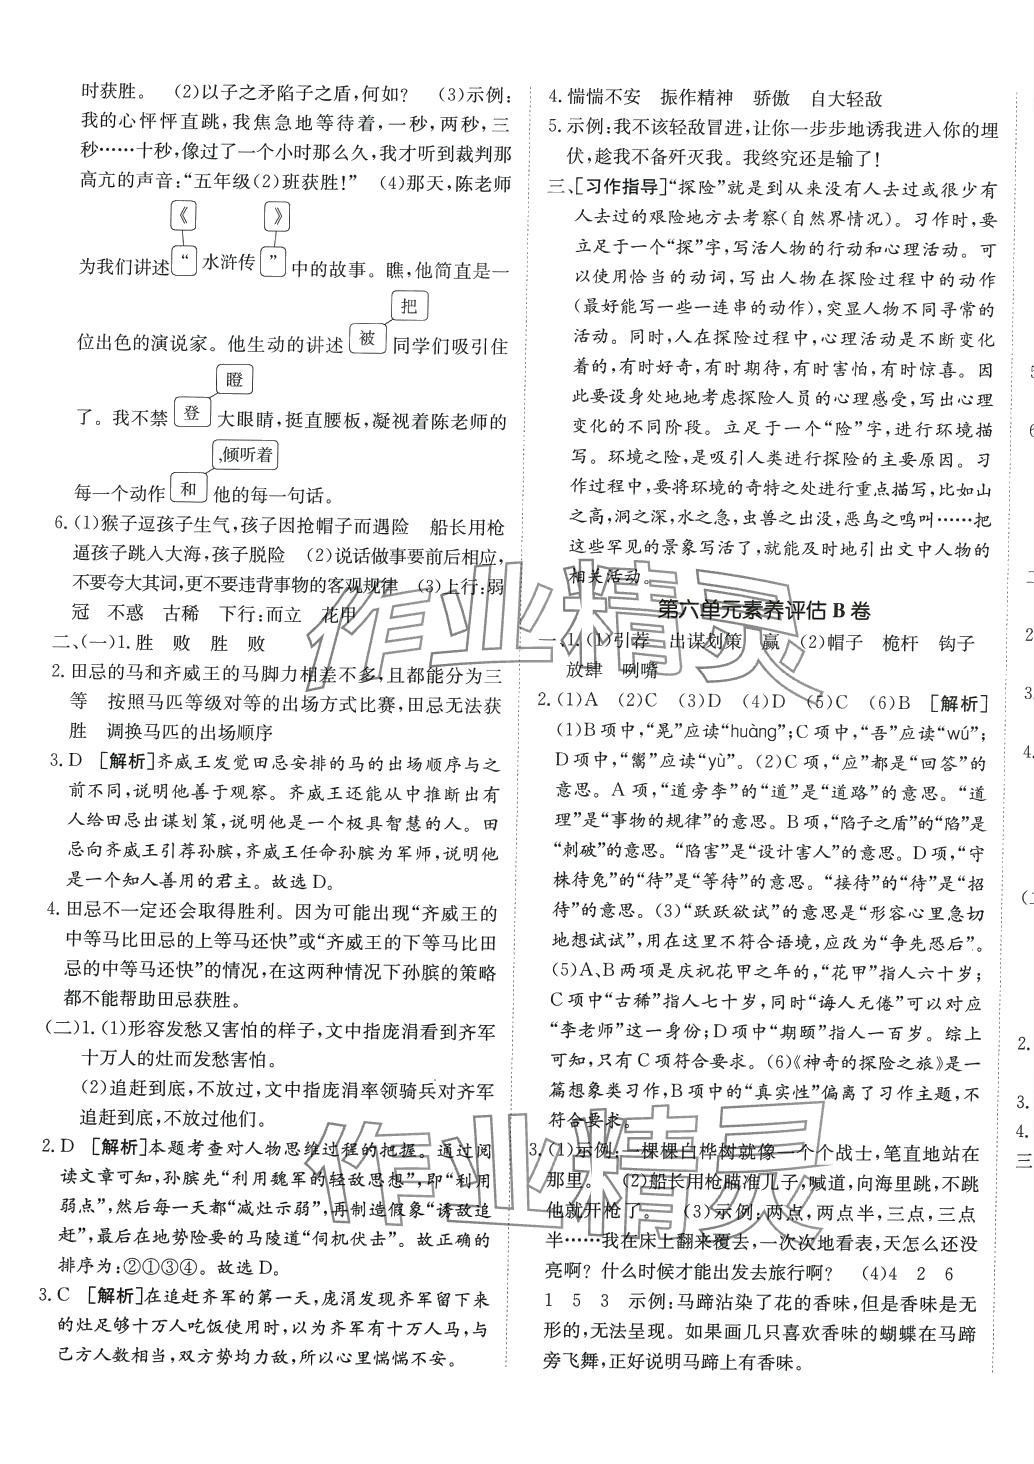 时获胜。　(2)以子之矛陷子之盾,何如?　(3)示例:
我的心怦怦直跳,我焦急地等待着,一秒,两秒,三
秒……十秒,像过了一个小时那么久,我才听到裁判那
高亢的声音:“五年级(2)班获胜!”　(4)那天,陈老师
《　》
为我们讲述“水浒传”中的故事。瞧,他简直是一
把
位出色的演说家。他生动的讲述被同学们吸引住
瞪
了。我不禁登大眼睛,挺直腰板,凝视着陈老师的
,倾听着
每一个动作和他的每一句话。
6. (1)猴子逗孩子生气,孩子因抢帽子而遇险　船长用枪
逼孩子跳入大海,孩子脱险　(2)说话做事要前后相应,
不要夸大其词,更不要违背事物的客观规律　(3)上行:弱
冠　不惑　古稀　下行:而立　花甲
二、(一)1. 胜　败　胜　败
2. 田忌的马和齐威王的马脚力相差不多,且都能分为三
等　按照马匹等级对等的出场方式比赛,田忌无法获
胜　调换马匹的出场顺序
3. D　[解析]齐威王发觉田忌安排的马的出场顺序与之
前不同,说明他善于观察。齐威王还能从中推断出有
人给田忌出谋划策,说明他是一个极具智慧的人。田
忌向齐威王引荐孙膑,齐威王任命孙膑为军师,说明他
是一个知人善用的君主。故选D。
4. 田忌不一定还会取得胜利。因为可能出现“齐威王的
中等马比田忌的上等马还快”或“齐威王的下等马比田
忌的中等马还快”的情况,在这两种情况下孙膑的策略
都不能帮助田忌获胜。
(二)1. (1)形容发愁又害怕的样子,文中指庞涓看到齐军
十万人的灶而发愁害怕。
(2)追赶到底,不放过,文中指庞涓率领骑兵对齐军
追赶到底,不放过他们。
2. D　[解析]本题考查对人物思维过程的把握。通过阅
读文章可知,孙膑先“利用魏军的轻敌思想”,即“利用
弱点”,然后每一天都“减灶示弱”,再制造假象“诱敌追
赶”,最后在地势险要的马陵道“伺机伏击”。故正确的
排序为:②①③④。故选D。
3. C　[解析]在追赶齐军的第一天,庞涓发现齐军留下来
的灶足够十万人吃饭使用时,以为齐军有十万人马,与
己方人数相当,双方势均力敌,所以心里惴惴不安。
4. 惴惴不安　振作精神　骄傲　自大轻敌
5. 示例:我不该轻敌冒进,让你一步步地诱我进入你的埋
伏,趁我不备歼灭我。我终究还是输了!
三、[习作指导]“探险”就是到从来没有人去过或很少有
人去过的艰险地方去考察(自然界情况)。习作时,要
立足于一个“探”字,写活人物的行动和心理活动。可
以使用恰当的动词,写出人物在探险过程中的动作
(最好能写一些一连串的动作),突显人物不同寻常的
活动。同时,人在探险过程中,心理活动是不断变化
着的,有时好奇,有时期待,有时害怕,有时惊喜。因
此要设身处地地考虑探险人员的心理感受,写出心理
变化的不同阶段。立足于一个“险”字,进行环境描
写。环境之险,是吸引人类进行探险的主要原因。习
作过程中,要将环境的奇特之处进行重点描写,比如山
之高,洞之深,水之急,虫兽之出没,恶鸟之鸣叫……把
这些罕见的景象写活了,就能及时地引出文中人物的
相关活动。
第六单元素养评估 B 卷
一、1. (1)引荐　出谋划策　赢　(2)帽子　桅杆　钩子
放肆　咧嘴
2. (1)A　(2)C　(3)D　(4)D　(5)C　(6)B　[解析]
(1)B项中,“晃”应读“huàng”;C项中,“吾”应读“wú”;
D项中,“鬻”应读“yù”。(2)C项,“应”都是“回答”的
意思。A项,“道旁李”的“道”是“道路”的意思。“道
理”是“事物的规律”的意思。B项,“陷子之盾”的“陷”是
“刺破”的意思。“陷害”是“设计害人”的意思。D项,“守
株待兔”的“待”是“等待”的意思。“接待”的“待”是“招
待”的意思。(3)“跃跃欲试”的意思是“形容心里急切
地想试试”,用在这里不符合语境,应改为“争先恐后”。
(5)A、B两项是庆祝花甲之年的,“花甲”指人六十岁;
C项中“古稀”指人七十岁,同时“诲人无倦”可以对应
“李老师”这一身份;D项中“期颐”指人一百岁。综上
可知,只有C项符合要求。(6)《神奇的探险之旅》是一
篇想象类习作,B项中的“真实性”偏离了习作主题,不
符合要求。
3. (1)示例:一棵棵白桦树就像一个个战士,笔直地站在
那里。　(2)船长用枪瞄准儿子,喊道,向海里跳,不跳
他就开枪了。　(3)示例:两点,两点半,三点,三点
半……我在床上翻来覆去,一次次地看表,天怎么还没
亮啊?什么时候才能出发去旅行啊?　(4)4　2　6
1　5　3　示例:马蹄沾染了花的香味,但是香味是无
形的,无法呈现。如果画几只喜欢香味的蝴蝶在马蹄
旁飞舞,正好说明马蹄上有香味。
作业精灵
作业精灵
5
6
二
2.
3.
4.
2.
3.
4.
三